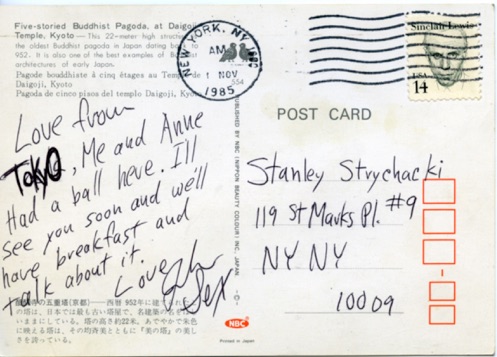 Five-storied Buddhist Pagoda, at Daigoji
Temple, Kyoto — This 22-meter high
the oldest Buddhist pagoda in Japan dating back to
952. It is also one of the best examples of
architectures of early Japan.
Pagode bouddhiste à cinq étages au Temple de
Daigoji, Kyoto
Pagoda de cinco pisos del templo Daigoji, Kyoto
NEW YORK, NY
AM
1 NOV
1985
554
Sinclair Lewis
USA
14
POST CARD
Love from
Tokyo, Me and Anne
Had a ball here. I'll
see you soon and we'll
have breakfast and
talk about it.
Love
Stanley Strychacki
119 St Marks Pl. #9
NY NY
10009
PUBLISHED BY NBC (NIPPON BEAUTY COLOUR) INC. JAPAN
の五重塔(京都)——西暦952年に建て
の塔は、日本では最も古い塔屋で、名建築の
いままにしている。塔の高さ約22米。あでやかで朱色
に映える塔は、その均斉美とともに「美の塔」の美し
さを誇っている。
NBC
Printed in Japan